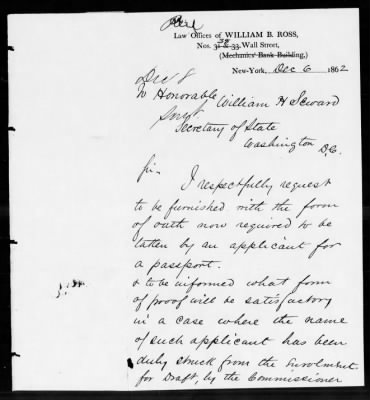 Law Offices of WILLIAM B. ROSS,
Nos. 31 & 33, Wall Street,
(Mechanics' Bank Building,)
New-York, Dec 6 1862
Dec 8
To Honorable William H Seward
Secretary of State
Washington D.C.
Sir.
I respectfully request
to be furnished with the form
of oath now required to be
taken by an applicant for
a passport.
& to be informed what form
of proof will be satisfactory
in a case where the name
of such applicant has been
duly struck from the Enrolment
for Draft, by the Commissioner